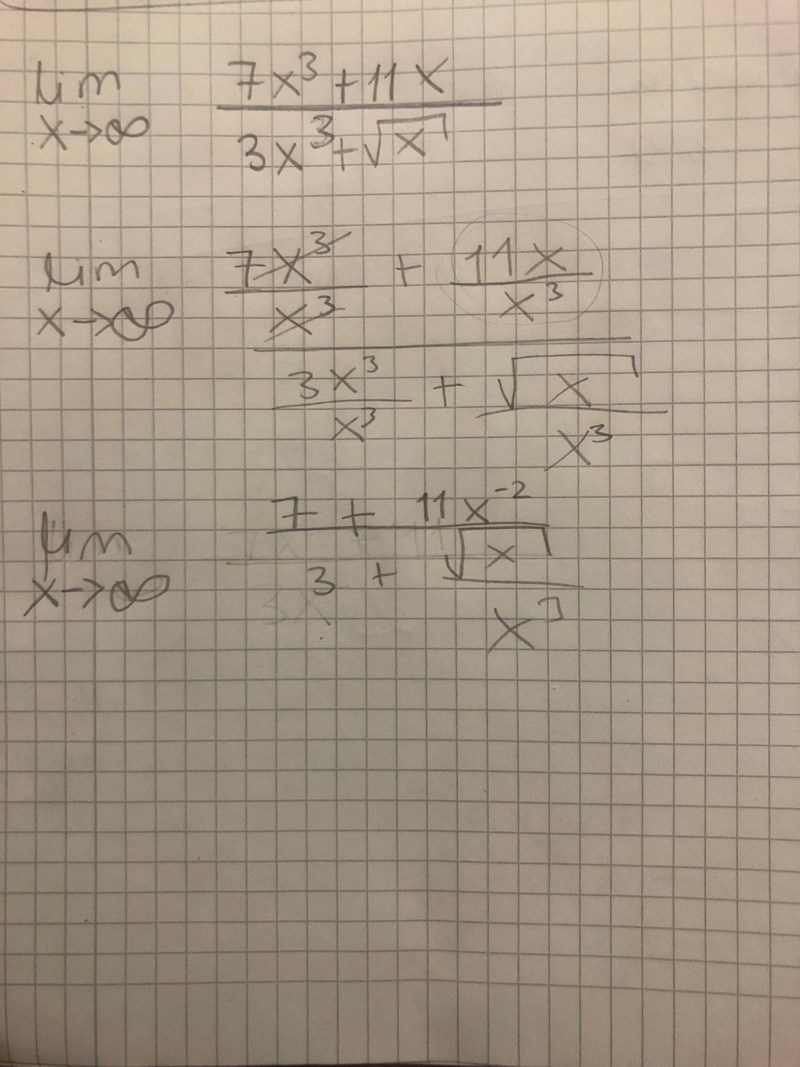 lim 7x³ + 11x
x→∞ 3x³ + √x
lim 7x³/x³ + 11x/x³
x→∞ 3x³/x³ + √x/x³
lim 7 + 11x⁻²
x→∞ 3 + √x/x³